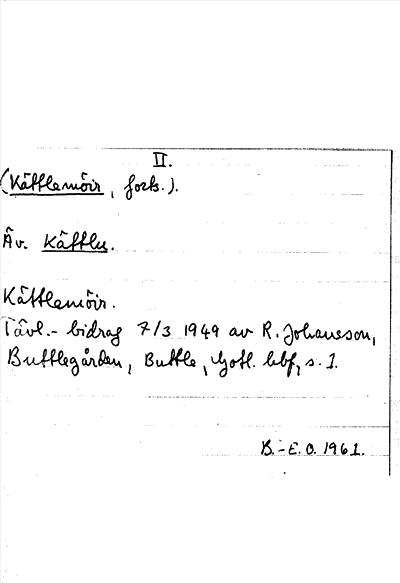 II.
(Kättlemöir, forts.).
Äv. Kättlu.
Kättlemöir.
Tävl.- bidrag 7/3 1949 av R. Johansson,
Buttlegården, Buttle, Gotl. hbf, s. 1.
B.-E.O. 1961.